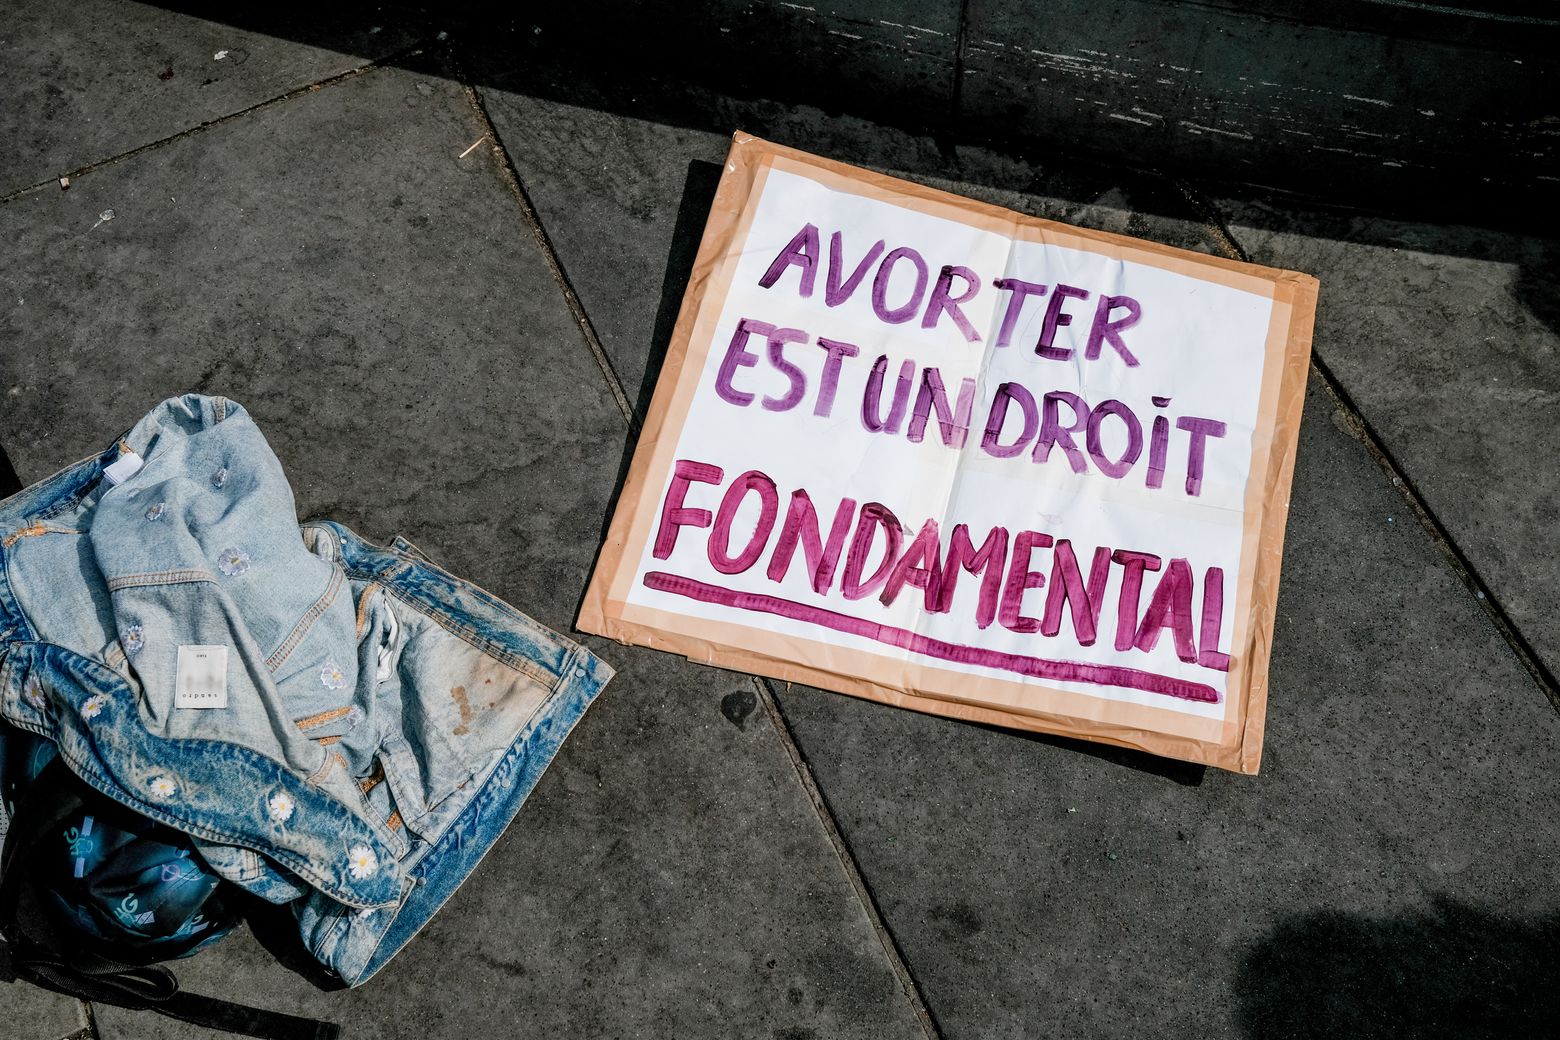 AVORTER
EST UN DROIT
FONDAMENTAL
sandro